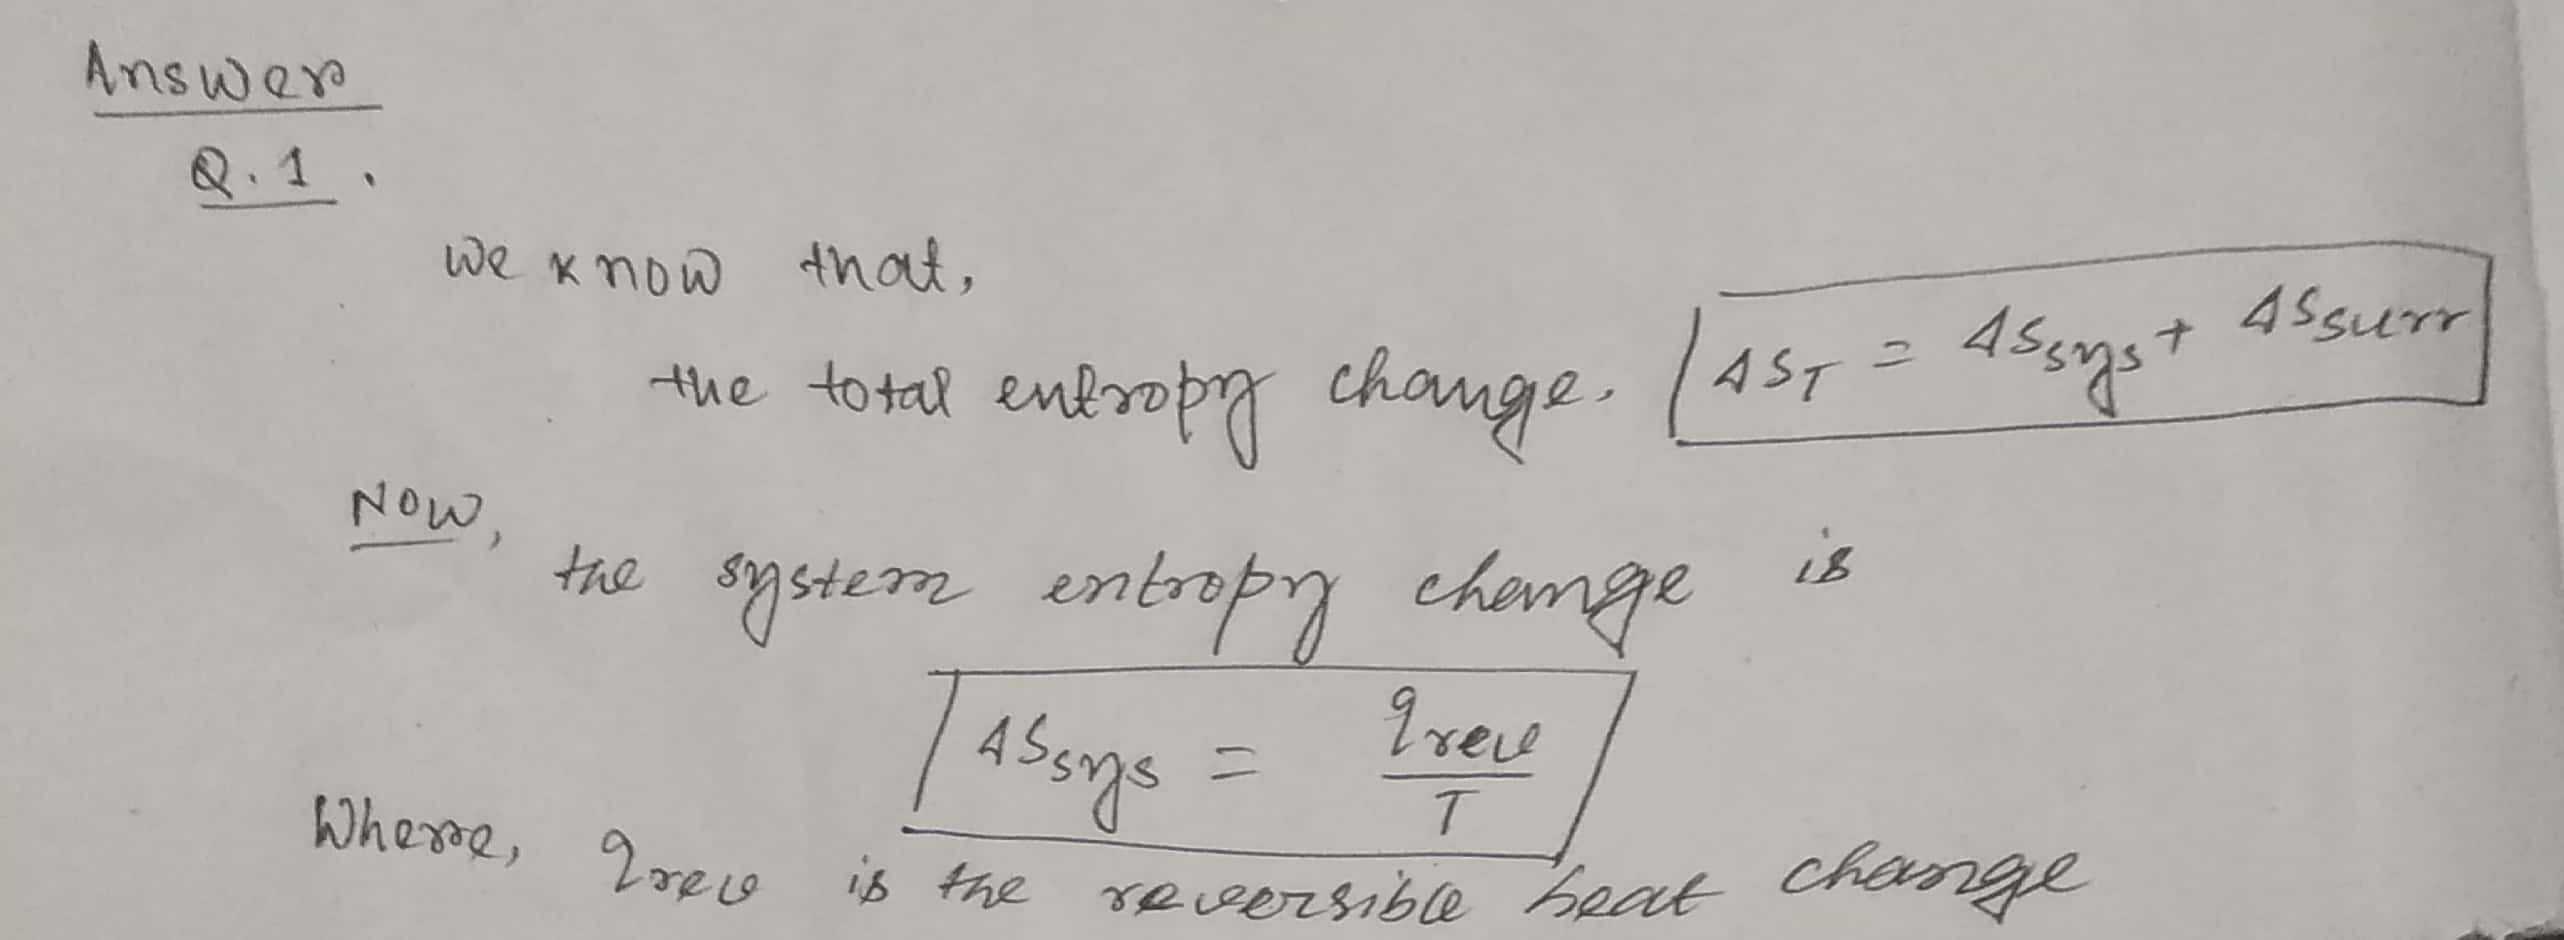 Answer
Q.1.
We know that,
the total entropy change. ΔS_T = ΔS_sys + ΔS_surr
Now,
the system entropy change is
ΔS_sys = q_rev / T
Where, q_rev is the reversible heat change